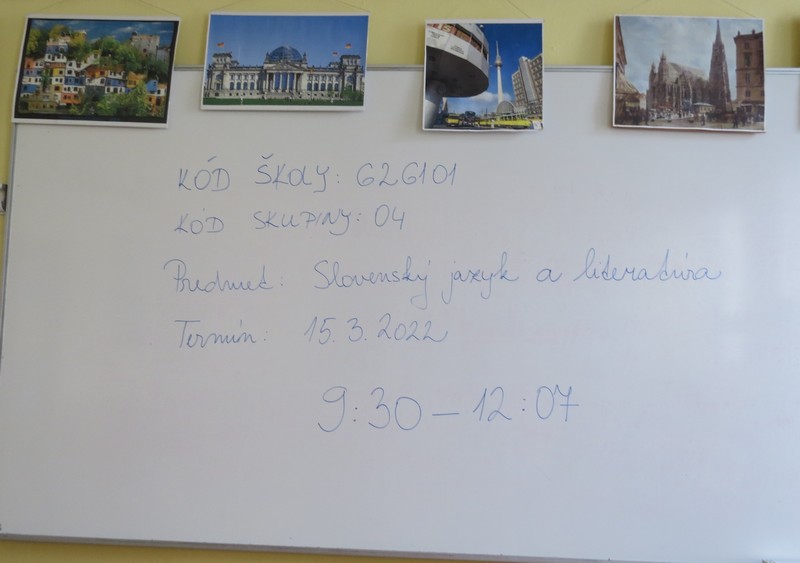 KÓD ŠKOLY: 626101
KÓD SKUPINY: 04
Predmet: Slovenský jazyk a literatúra
Termín: 15.3.2022
9:30 – 12:07